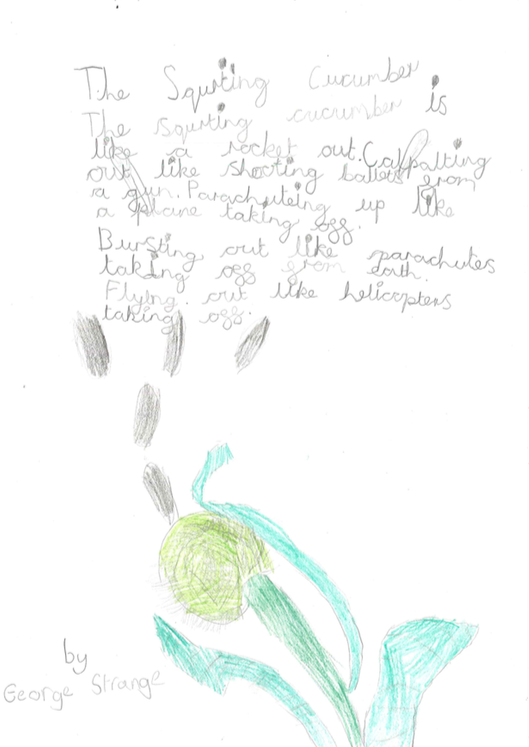 The Squrting Cucumber
The squrting cucumber is
like a rocket out. Catpalting
out like shooting ballets from
a gun. Parachuteing up like
a plane taking off.
Bursting out like parachutes
taking off from earth.
Flying. out like helicopters
taking off.
by
George Strange